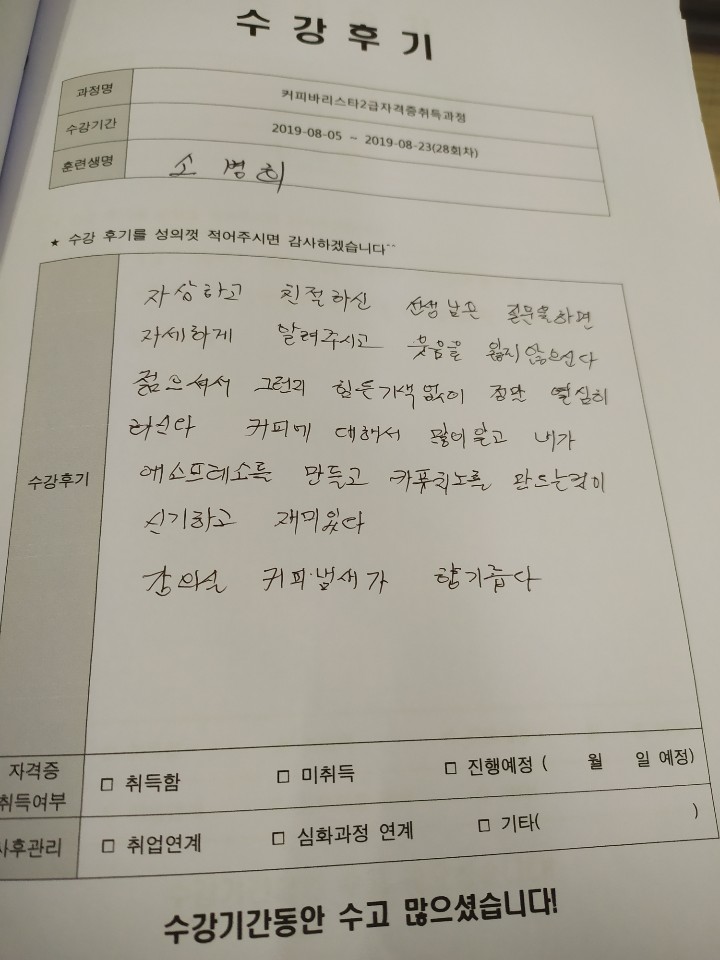 수강후기
과정명 커피바리스타2급자격증취득과정
수강기간 2019-08-05 ~ 2019-08-23(28회차)
훈련생명 소병희
★ 수강 후기를 성의껏 적어주시면 감사하겠습니다^^
수강후기
자상하고 친절하신 선생님은 질문을하면
자세하게 알려주시고 웃음을 잃지않으신다
젊으셔서 그런지 힘든기색없이 정말 열심히
하신다 커피에 대해서 많이알고 내가
에소프레소를 만들고 카푸치노를 만드는것이
신기하고 재미있다
강의실 커피냄새가 향기롭다
자격증 취득여부 □ 취득함 □ 미취득 □ 진행예정 ( 월 일 예정)
사후관리 □ 취업연계 □ 심화과정 연계 □ 기타( )
수강기간동안 수고 많으셨습니다!